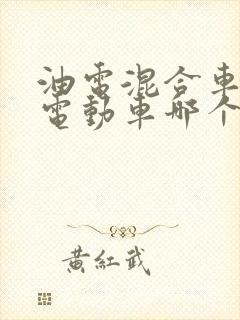 油電混合車
電動車哪个
黃紅武